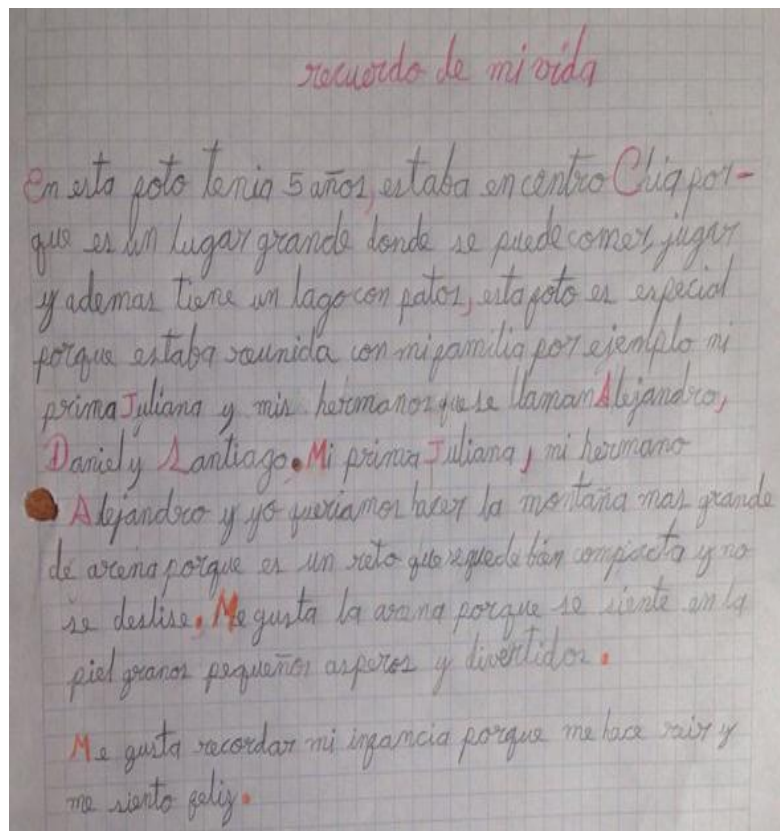 recuerdo de mi vida
En esta foto tenia 5 años, estaba en centro Chia por-
que es un lugar grande donde se puede comer, jugar
y ademas tiene un lago con patos, esta foto es especial
porque estaba reunida con mi familia por ejemplo mi
prima Juliana y mis hermanos que se llaman Alejandro,
Daniel y Santiago. Mi prima Juliana, mi hermano
Alejandro y yo queriamos hacer la montaña mas grande
de arena porque es un reto que se quede bien compacta y no
se deslise. Me gusta la arena porque se siente en la
piel granos pequeños asperos y divertidos.
Me gusta recordar mi infancia porque me hace reir y
me siento feliz.